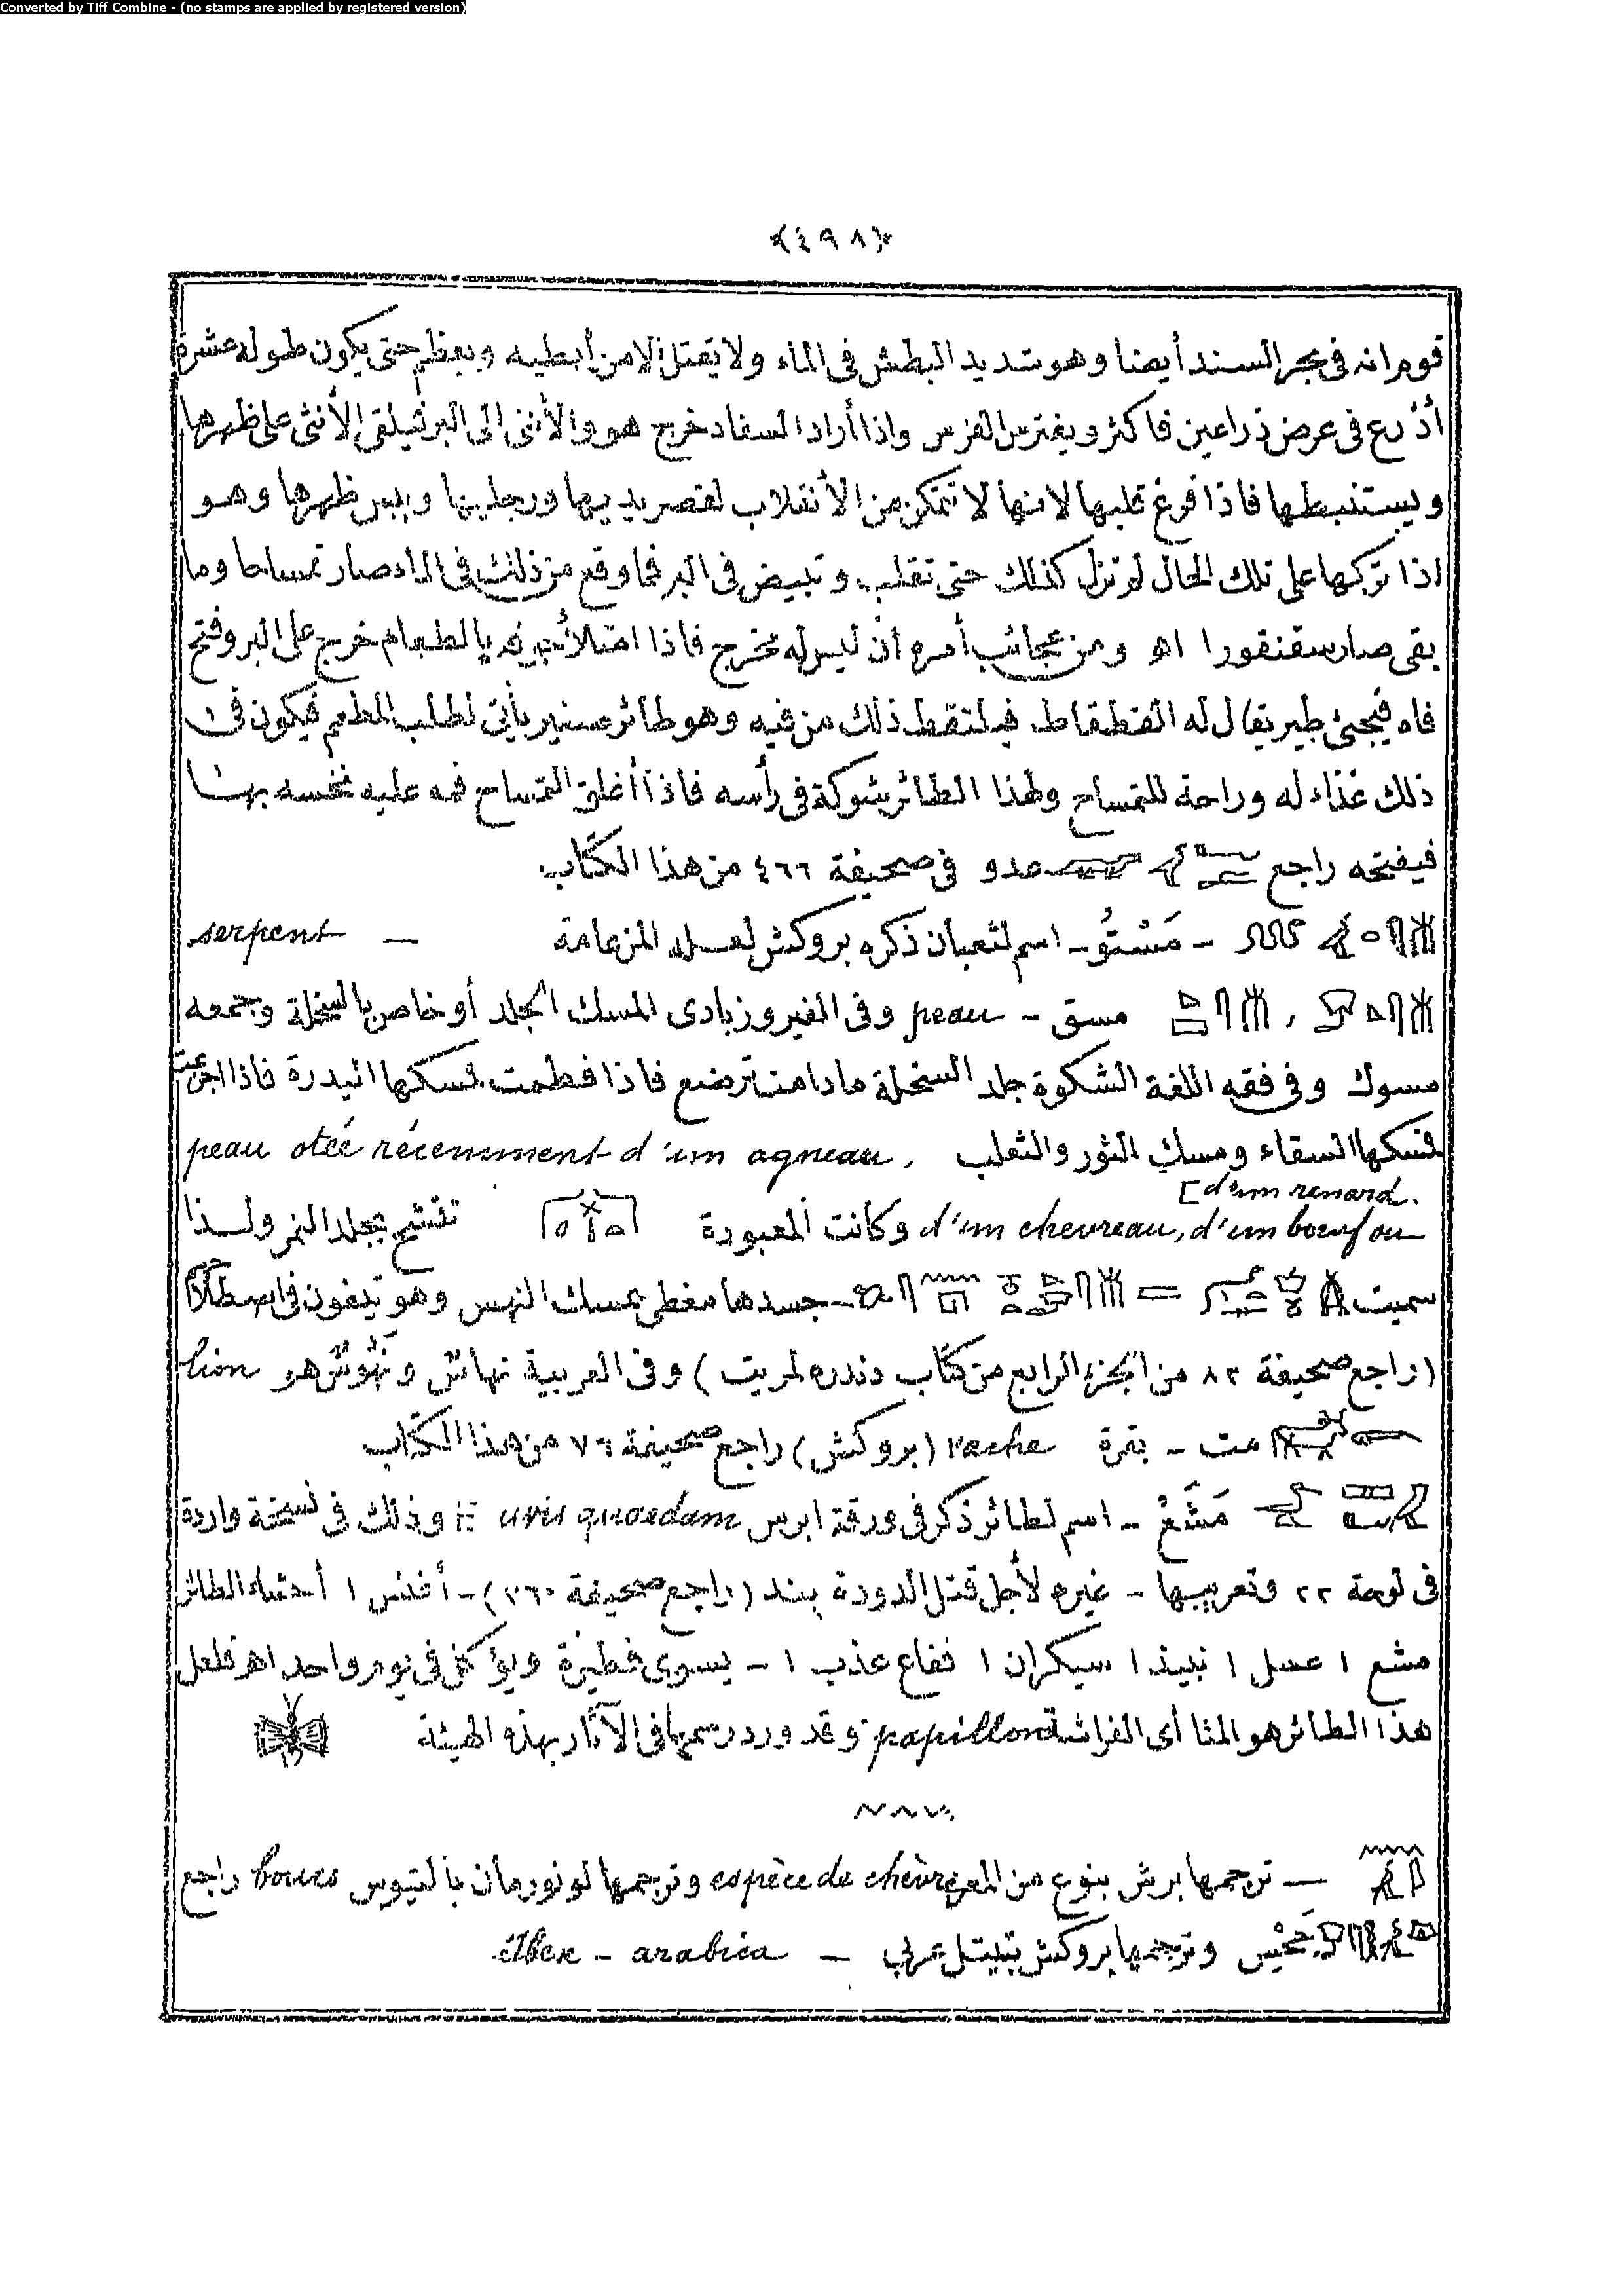 Converted by Tiff Combine - (no stamps are applied by registered version)
﴿٤٩٨﴾
قوم انه فى بحر السند أيضا وهو شديد البطش فى الماء ولا يقتل الا من أبطيه ويعظم حتى يكون طوله عشرة
أذرع فى عرض ذراعين فأكثر ويفترس الفرس واذا أراد السفاد خرج هو والأنثى الى البر فيلقى الأنثى على ظهرها
ويستنبطها فاذا فرغ قلبها لانها لا تتمكن من الأنقلاب لقصر يديها ورجليها ويبس ظهرها وهو
اذا تركها على تلك الحال لم تزل كذلك حتى تقلب وتبيض فى البر فما وقع من ذلك فى الماء صار تمساحا وما
بقى صار سقنقورا اهـ ومن عجائب أمره أن ليس له مخرج فاذا امتلأ جوفه بالطعام خرج على البر وفتح
فاه فيجئ طير يقال له القطقاط فيلتقط ذلك من فيه وهو طائر صغير يأتى لطلب المطعم فيكون فى
ذلك غذاء له وراحة للتمساح ولهذا الطائر شوكة فى رأسه فاذا أغلق التمساح فمه عليه نخسه بها
فيفتحه راجع عدو فى صحيفة ٤٦٦ من هذا الكتاب
- مَسْتُو - اسم لثعبان ذكره بروكش لعله المزعامة — serpent
مسق - peau وفى الفيروزبادى المسك الجلد أو خاص بالسخلة وجمعه
مسوك وفى فقه اللغة الشكوة جلد السخلة مادامت ترضع فاذا فطمت فمسكها البدرة فاذا اجزعت
فمسكها السقاء ومسك الثور والثعلب peau otée récemment d'um agneau,
[d'um renard.
d'um chevreau, d'um bœuf ou وكانت المعبودة تتشح بجلد النمر ولذا
سميت = - جسدها مغطى بمسك النهس وهو تيفون فى اصطلاح
(راجع صحيفة ٨٢ من الجزء الرابع من كتاب دندره لمريت) وفى العربية نهاسٌ ونَهُوسٌ هو lion
مت - بقرة vache (بروكش) راجع صحيفة ٧٦ من هذا الكتاب
مَشَعْ - اسم لطائر ذكر فى ورقة ابرس avis quaedam وذلك فى نسخة واردة
فى لوحة ٢٢ وتعريبها - غيره لأجل قتل الدودة بند (راجع صحيفة ٢٦٠) - أفنس ١ أحشاء الطائر
مشع ١ عسل ١ نبيذ ١ سيكران ١ فقاع عذب ١ - يسوى فطيرة ويؤكل فى يوم واحد اهـ فلعل
هذا الطائر هو المثا أى الفراشة papillon وقد ورد رسمها فى الآثار بهذه الهيئة
— ترجمها برش بنوع من المعز espèce de chèvre وترجمها لونورمان بالتيوس boucs راجع
نحْيِس وترجمها بروكش بتيتل عربى — ibex - arabica